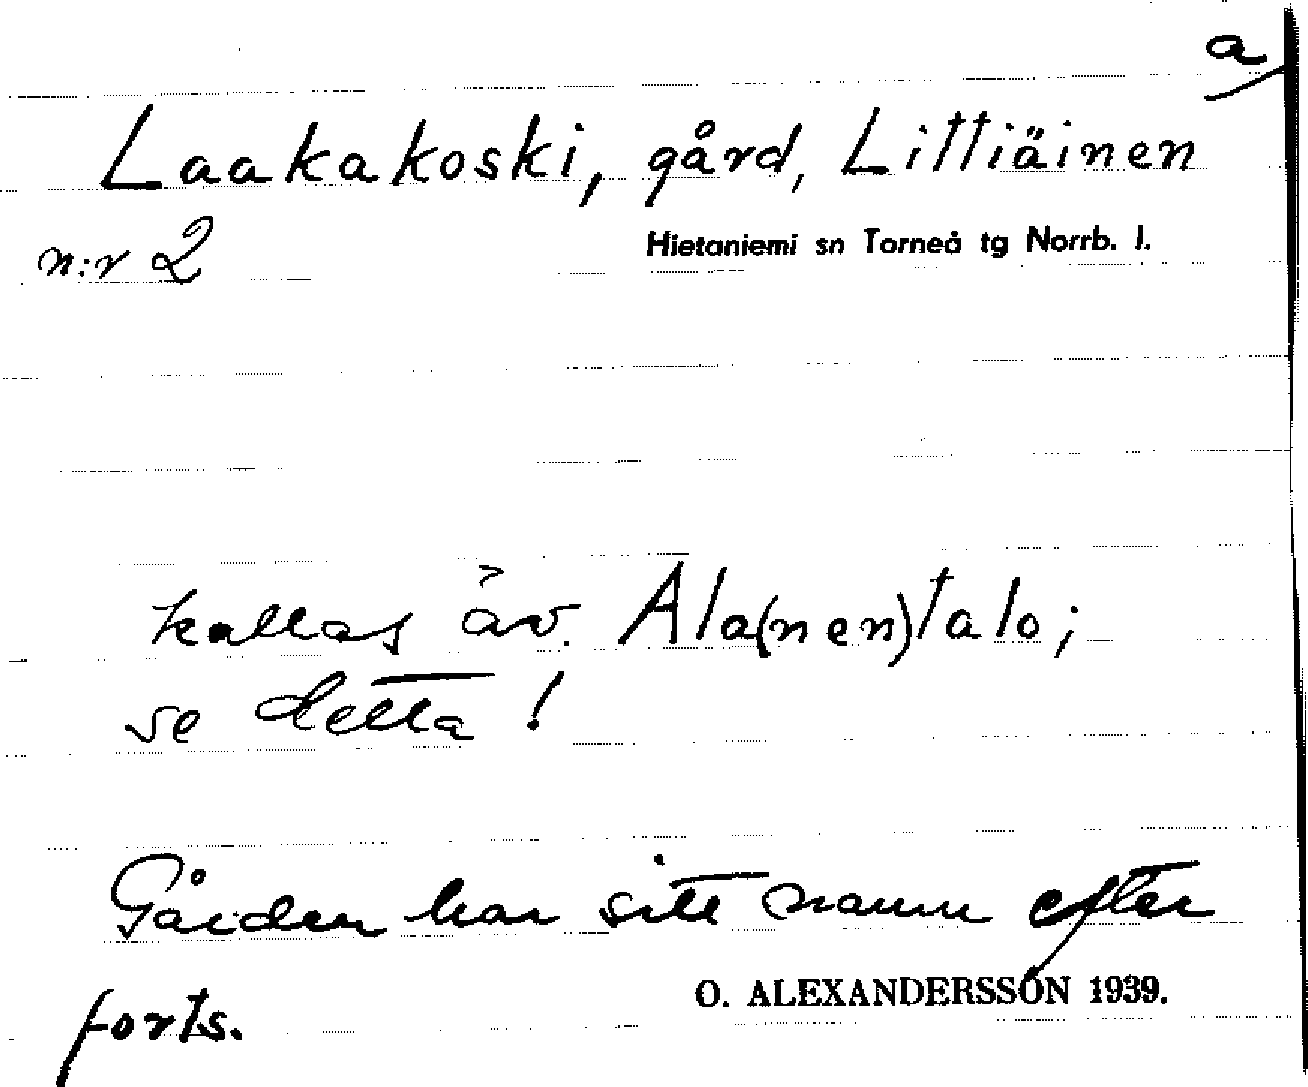 a
Laakakoski, gård, Littiäinen
n:r 2
Hietaniemi sn Torneå tg Norrb. l.
kallas äv. Ala(nen)talo;
se detta!
Gården har sitt namn efter
forts.
O. ALEXANDERSSON 1939.